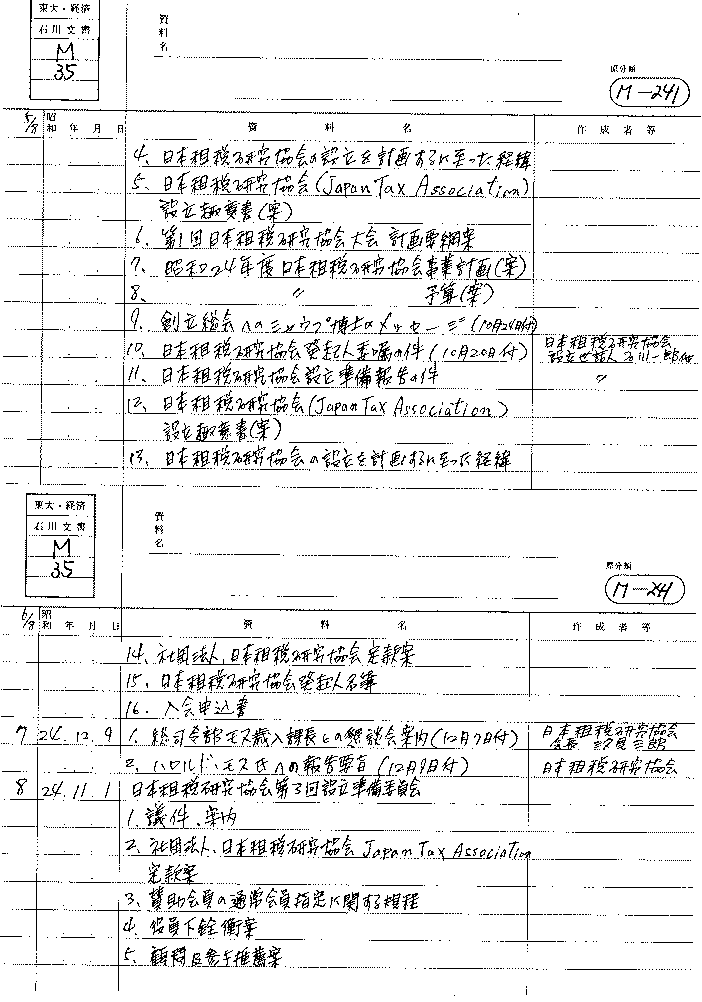 東大・経済
石川文書
M
35
資料名
原分類
M-241
5/分 昭和 年 月 日 資料名 作成者等
4、日本租税研究協会の設立を計画するに至った経緯
5、日本租税研究協会(Japan Tax Association)
設立趣意書(案)
6、第1回日本租税研究協会大会 計画要綱案
7、昭和24年度日本租税研究協会事業計画(案)
8、 〃 予算(案)
9、創立総会へのシャウプ博士のメッセージ(10月24日付)
10、日本租税研究協会発起人委嘱の件(10月20日付) 日本租税研究協会
設立世話人 石川一郎他
11、日本租税研究協会設立準備報告の件 〃
12、日本租税研究協会(Japan Tax Association)
設立趣意書(案)
13、日本租税研究協会の設立を計画するに至った経緯
東大・経済
石川文書
M
35
資料名
原分類
M-241
6/分 昭和 年 月 日 資料名 作成者等
14、社団法人、日本租税研究協会定款案
15、日本租税研究協会発起人名簿
16、入会申込書
7 24.12.9 1、総司令部モス歳入課長との懇談会案内(12月7日付) 日本租税研究協会
会長
2、ハロルド・モス氏への報告要旨(12月9日付) 日本租税研究協会
8 24.11.1 日本租税研究協会第3回設立準備委員会
1、議件、案内
2、社団法人、日本租税研究協会 Japan Tax Association
定款案
3、賛助会員の通常会員指定に関する規程
4、役員下銓衡案
5、顧問及参与推薦案